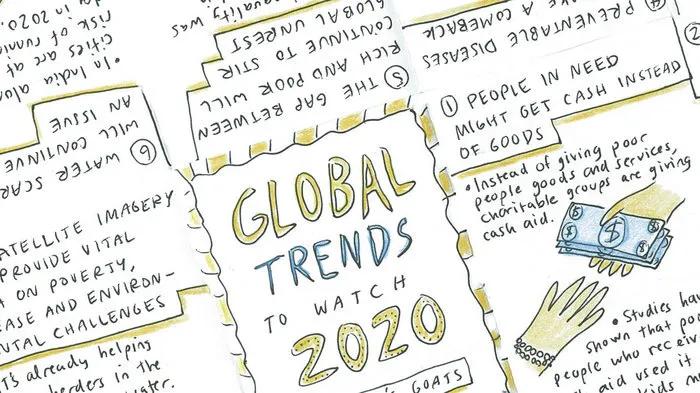 GLOBAL
TRENDS
TO WATCH
2020
GOATS
① PEOPLE IN NEED
MIGHT GET CASH INSTEAD
OF GOODS
• Instead of giving poor
people goods and services,
charitable groups are giving
cash aid.
$
• Studies
shown that
people who
aid used it
PREVENTABLE DISEASES
A COMEBACK
⑤ THE GAP BETWEEN
RICH AND POOR WILL
CONTINUE TO STIR
GLOBAL UNREST
was
⑥ WATER
WILL CONTINUE
AN ISSUE
• In India
cities are at
risk of
in 2020.
IMAGERY
PROVIDE VITAL
ON POVERTY,
AND ENVIRON-
CHALLENGES
already helping
in the